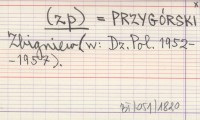 (zp) = PRZYGÓRSKI
Zbigniew (w: Dz. Pol. 1952-
-1957).